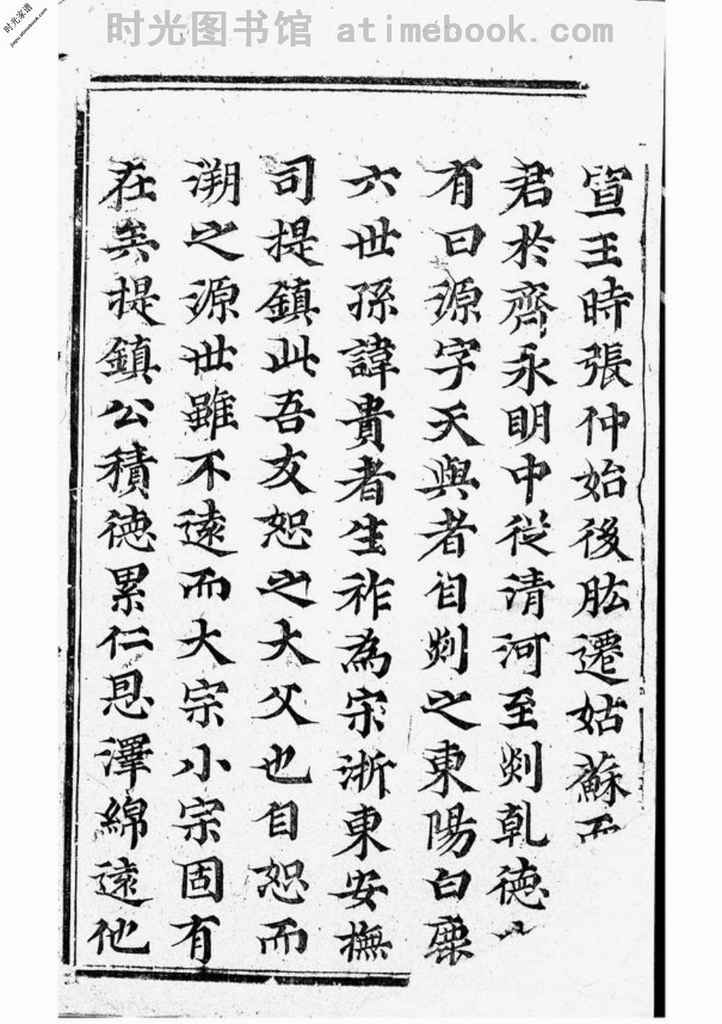 时光图书馆 atimebook.com
时光家谱
jiapu.atimebook.com
宣王時張仲始後肱遷姑蘇
君於齊永明中從清河至剡乹德
有曰源字天與者自剡之東陽白鹿
六世孫諱貴者生祚為宗浙東安撫
司提鎮此吾友恕之大父也自恕而
溯之源世雖不遠而大宗小宗固有
在矣提鎮公積德累仁恩澤綿遠他